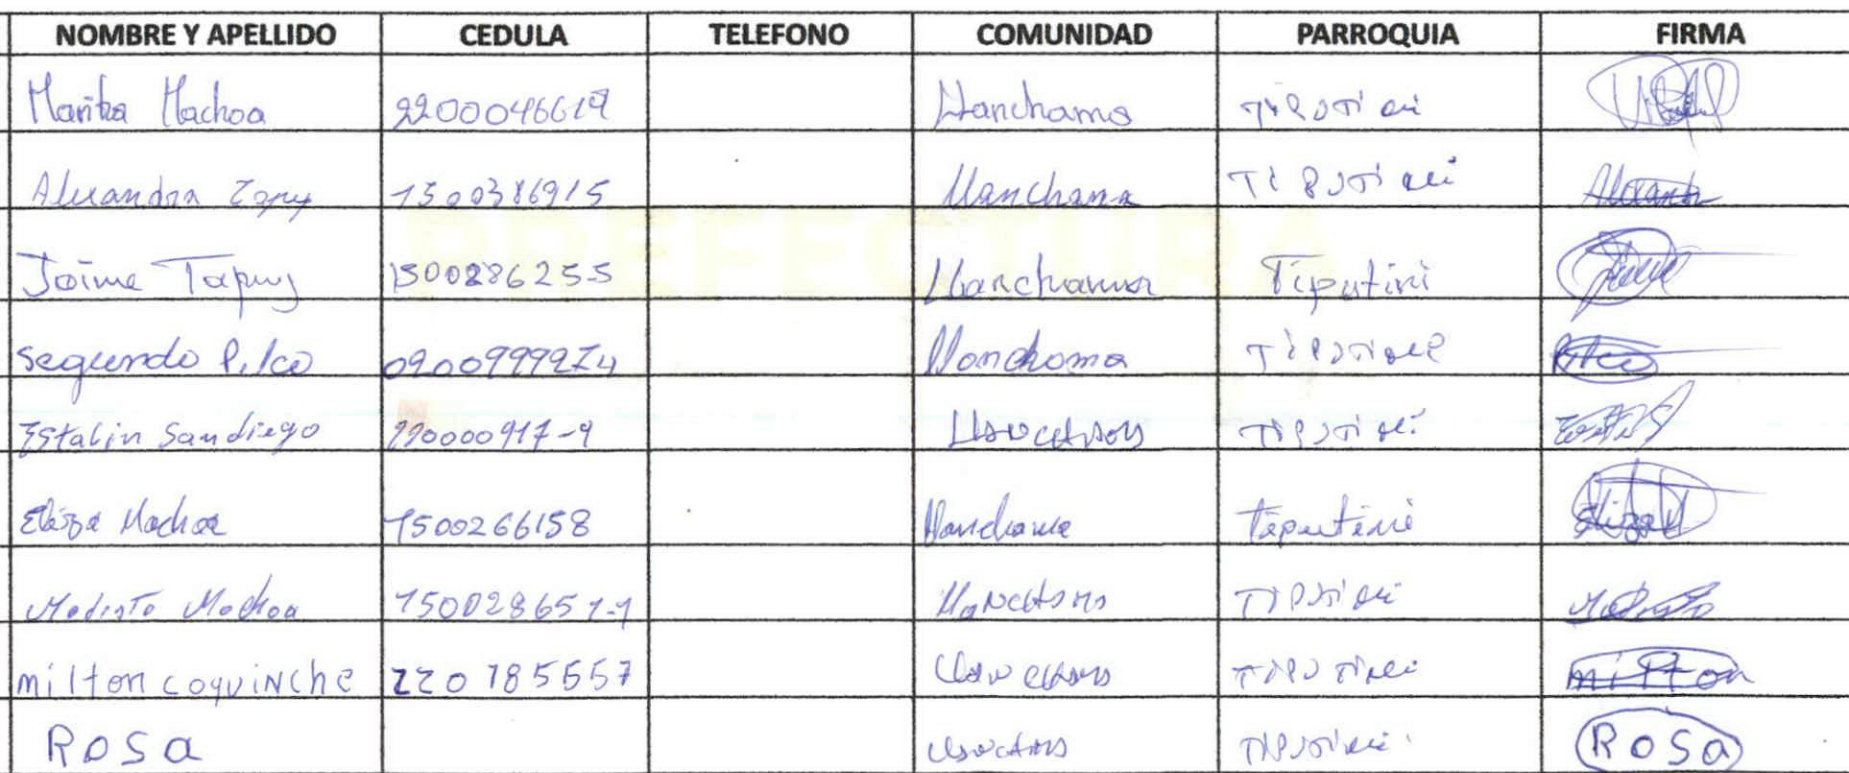 NOMBRE Y APELLIDO CEDULA TELEFONO COMUNIDAD PARROQUIA FIRMA
Maritza Machoa 2200046619 Llanchama Tiputini
Alexandra Tapuy 1500386915 Llanchama Tiputini Alexandra
Jaime Tapuy 1500286255 Llanchama Tiputini Jaime
PREFECTURA
Segundo Pilco 0200999274 Llanchama Tiputini Pilco
Estalin Sandiego 220000917-9 Llanchama Tiputini
Eliza Machoa 1500266158 Llanchama Tiputini Eliza M
Modesto Machoa 150028651-1 Llanchama Tiputini Modesto
milton coquinche 2201785557 Llanchama Tiputini milton
ROSA Llanchama Tiputini ROSA